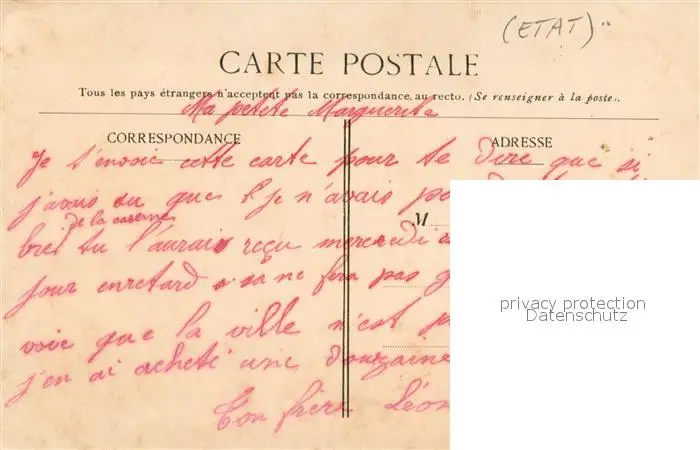 (ETAT)
CARTE POSTALE
Tous les pays étrangers n'acceptent pas la correspondance au recto. (Se renseigner à la poste).
Ma petite Marguerite
CORRESPONDANCE
ADRESSE
Je t'envoie cette carte pour te dire que si
j'avais su que je n'avais
de la caserne
M
tu l'aurais reçu mercredi
jour en retard sa ne fera pas
voie que la ville n'est
j'en ai acheté une douzaine
Ton frère Léon
privacy protection
Datenschutz